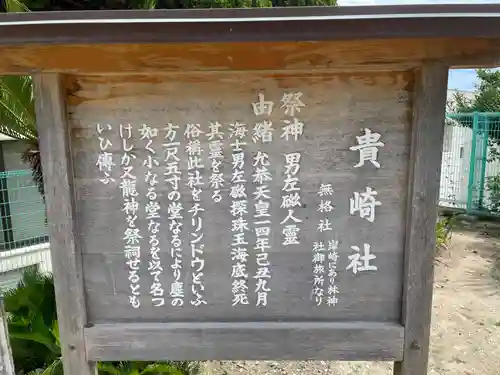 貴崎社
無格社 岸崎にあり林神
社御旅所なり
祭神 男左磁人霊
由緒 允恭天皇二四年己丑九月
海士男左磁探珠玉海底終死
其霊を祭る
俗稱此社をチリンドウといふ
方一尺五寸の堂なるにより塵の
如く小なる堂なるを以て名つ
けしか又龍神を祭祠せるとも
いひ傳ふ